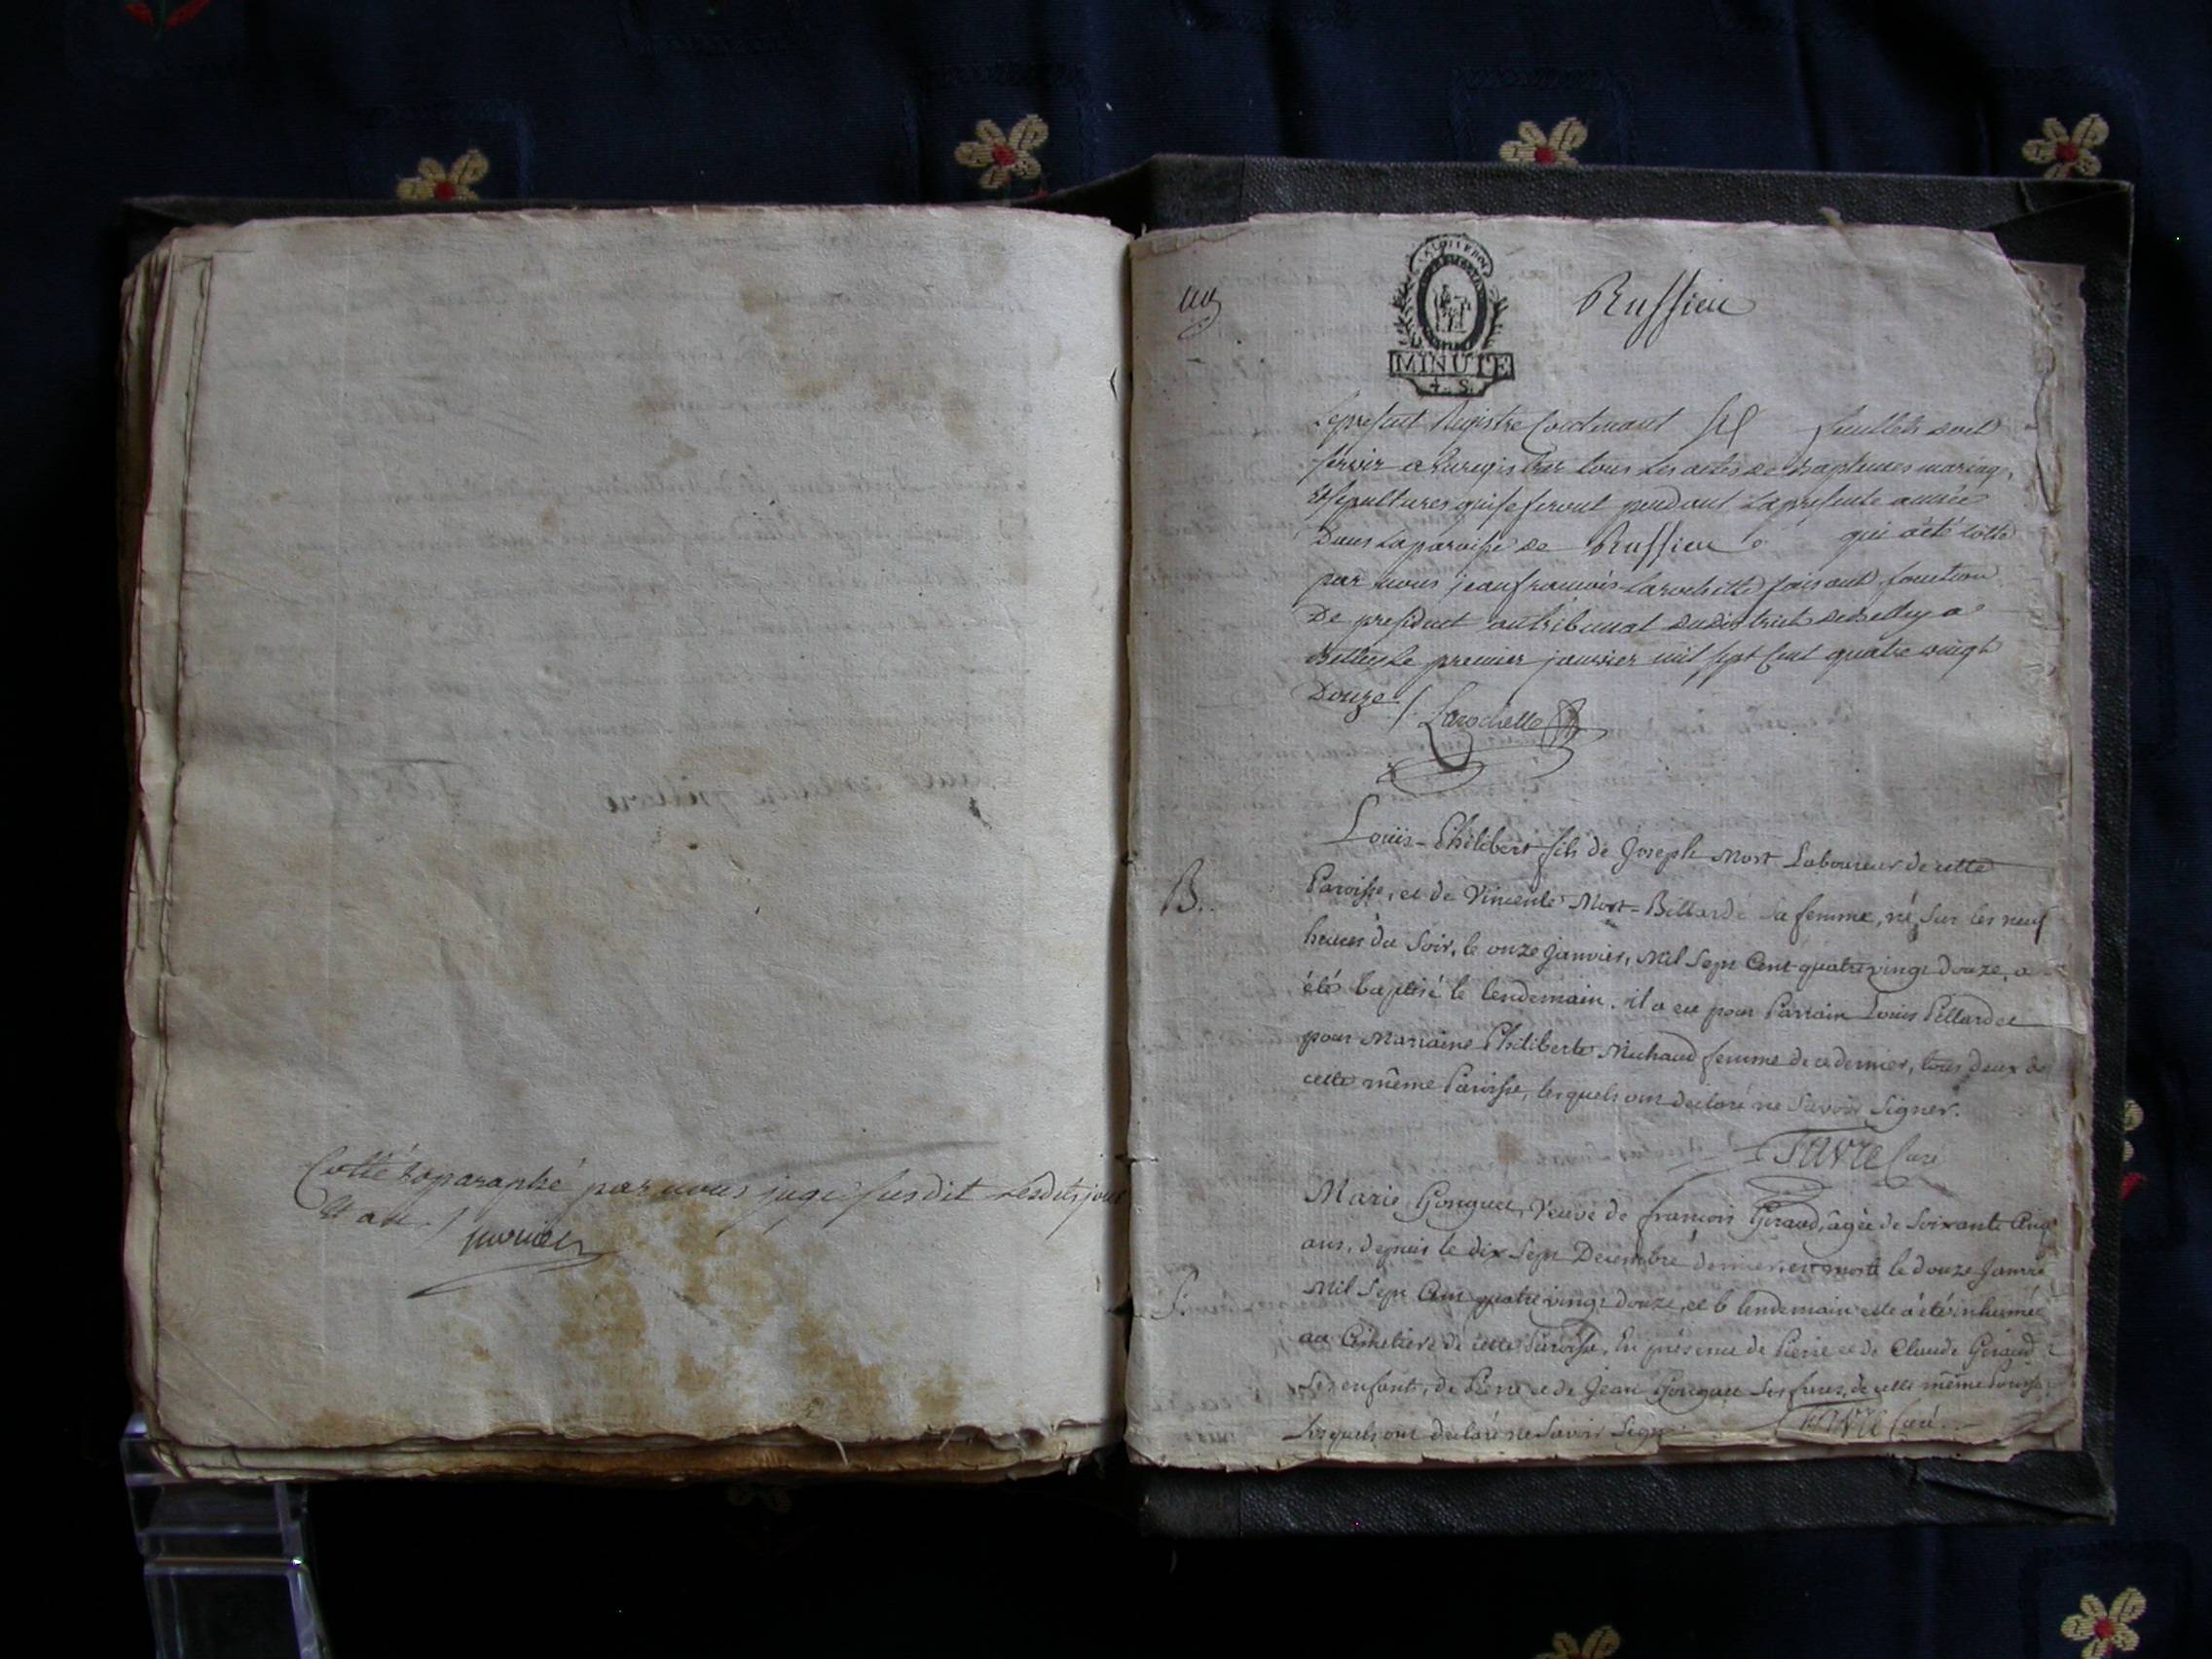 Cotté & paraphé par nous juge susdit lesdits jour
& an /.
Ruffieu
LA LOI ET LE ROI
MINUTE
4. S.
Le present Registre Contenant six feuillets doit
servir a Enregistrer tous les actes de Baptemes mariages,
Et sepultures qui se feront pendant la presente année
Dans la paroisse de Ruffieu qui a été cotté
par nous jean francois Larochette faisant fonction
De president au tribunal du district de Belley a
Belley Le premier janvier mil sept Cent quatre vingt
Douze /. Larochette
B.
Louis-Philibert fils de Joseph Mort Laboureur de cette
Paroisse, et de Vincente Mort-Billard sa femme, né sur les neuf
heures du Soir, le onze Janvier, Mil Sept Cent quatre vingt douze, a
été baptisé le lendemain. il a eu pour Parrain Louis Pillard et
pour Marraine Philiberte Michaud femme de ce dernier, tous deux de
cette même Paroisse, lesquels ont declaré ne Savoir Signer.
Favre Curé
S.
Marie Gonguet, Veuve de françois Giraud, âgée de Soixante Cinq
ans, depuis le dix Sept Decembre dernier, est morte le douze Janvier
Mil Sept Cent quatre vingt douze, et le lendemain elle a été inhumée
au Cimetiere de cette Paroisse, En présence de Pierre et de Claude Giraud
Ses enfants, de Pierre et de Jean Gonguet Ses freres, de cette même Paroisse
lesquels ont declaré ne Savoir Signer. Favre Curé.